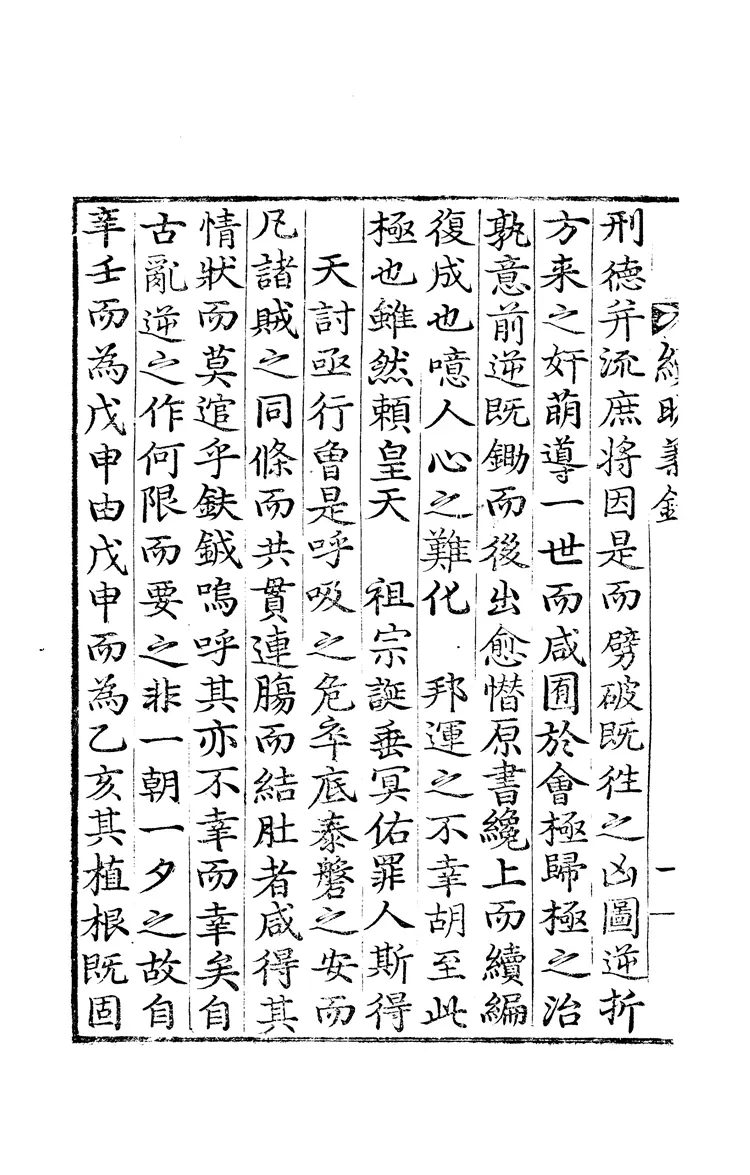 續明義錄
一
刑德并流庶將因是而劈破既徃之凶圖逆折
方来之奸萌導一世而咸囿於會極歸極之治
孰意前逆既鋤而後出愈憯原書纔上而續編
復成也噫人心之難化　邦運之不幸胡至此
極也雖然賴皇天　祖宗誕垂冥佑罪人斯得
　天討亟行曾是呼吸之危卒底泰磐之安而
凡諸賊之同條而共貫連膓而結肚者咸得其
情狀而莫逭乎鈇鉞嗚呼其亦不幸而幸矣自
古亂逆之作何限而要之非一朝一夕之故自
辛壬而為戊申由戊申而為乙亥其植根既固